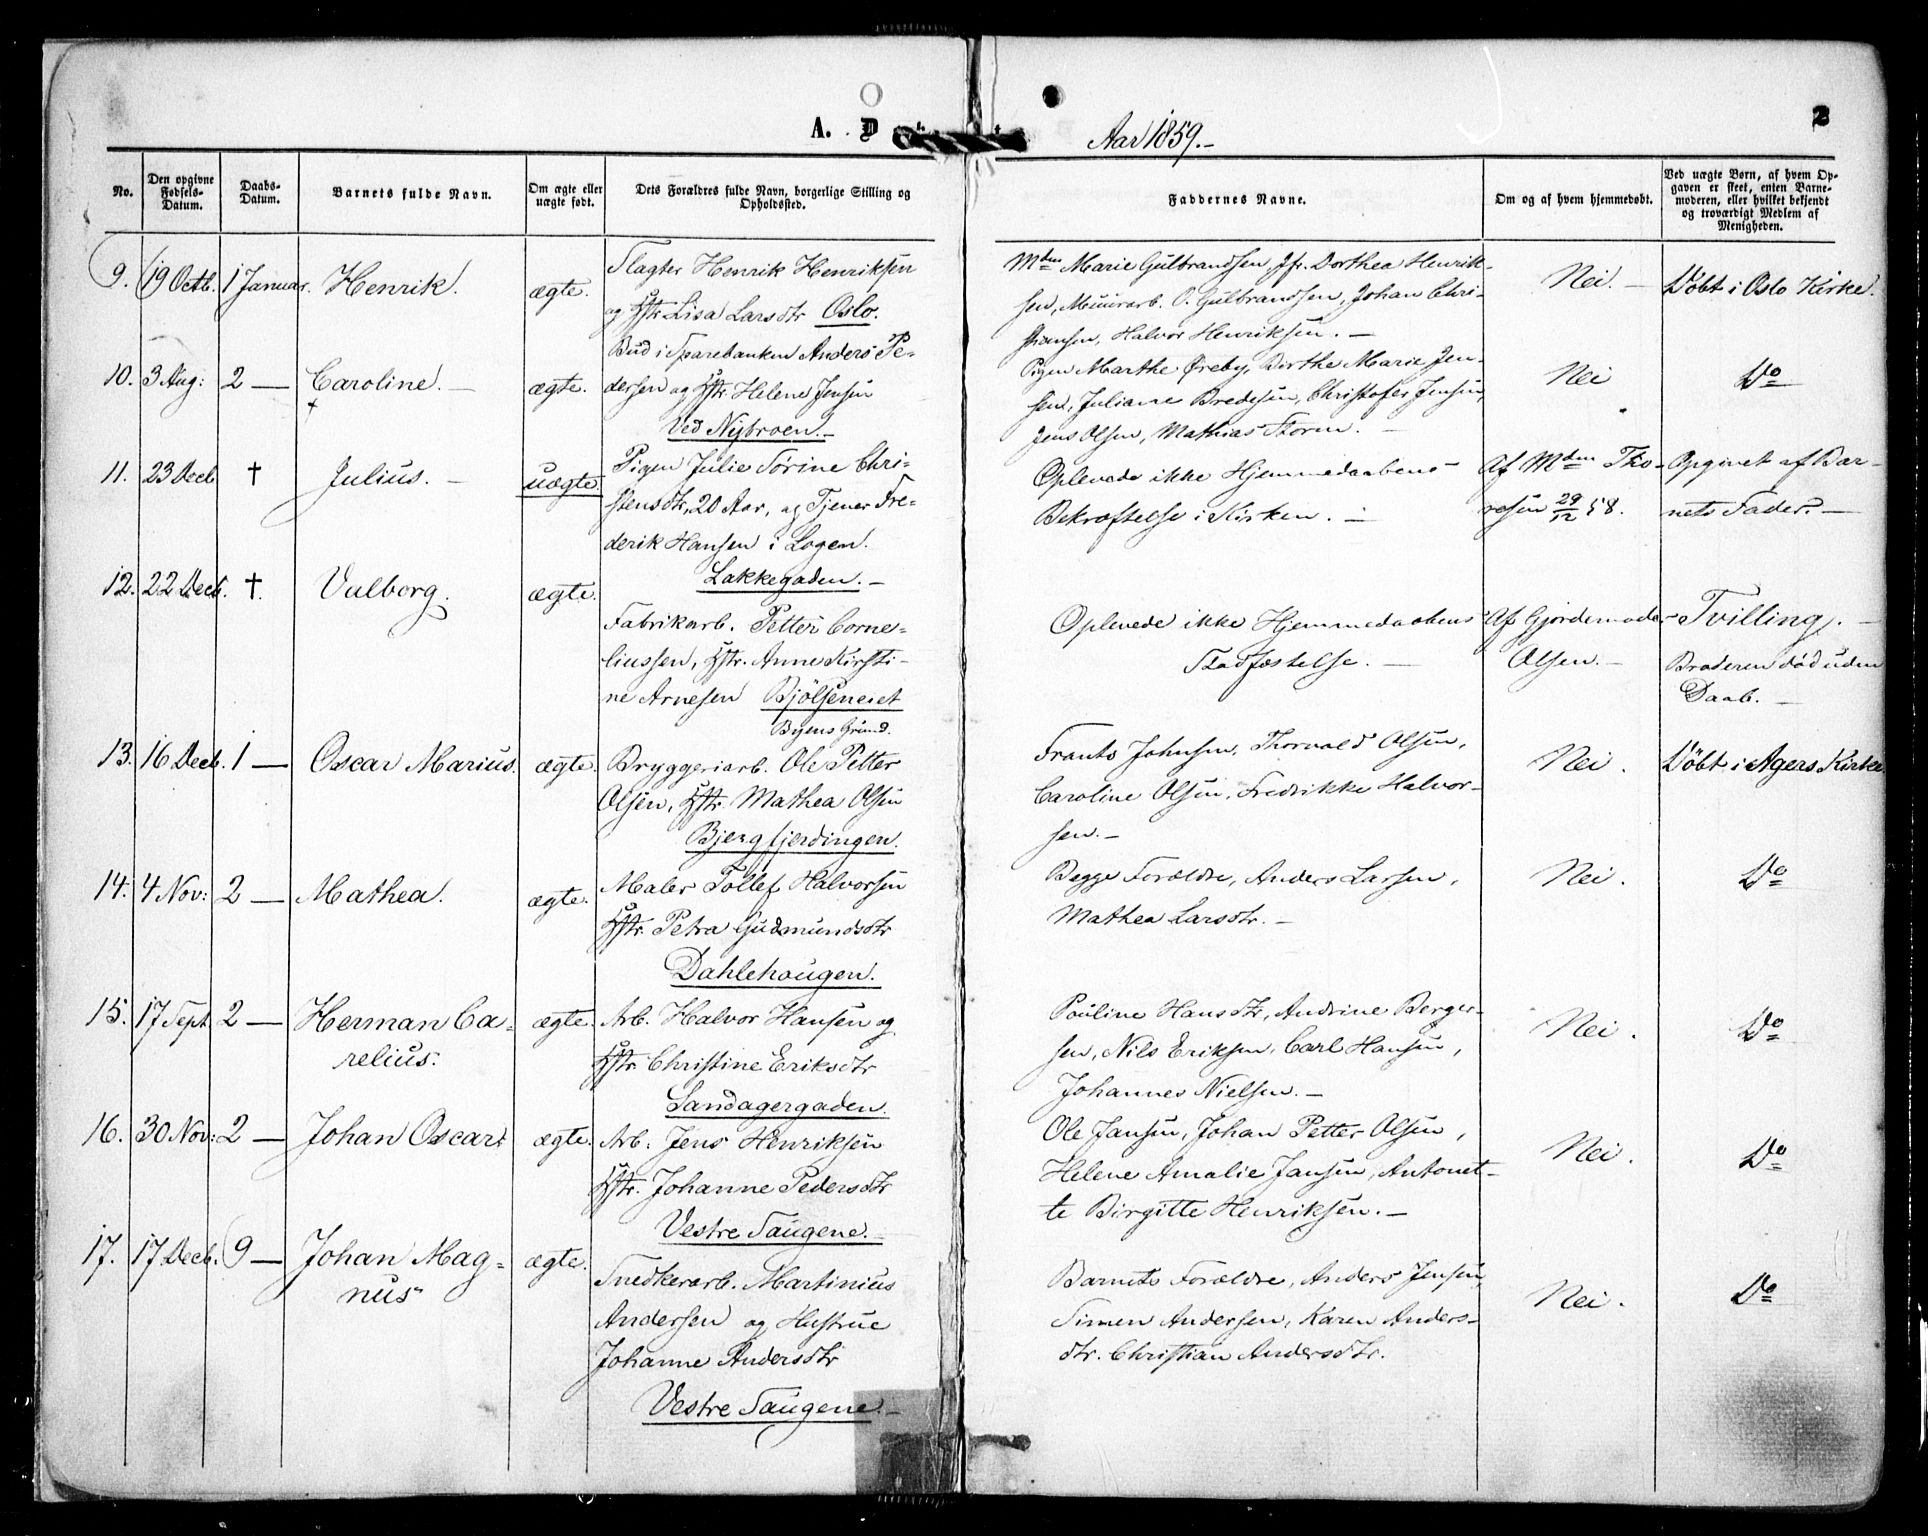 2
A. D
Aar 1859.-
No.
Den opgivne Fødsels-Datum.
Daabs-Datum.
Barnets fulde Navn.
Om ægte eller uægte født.
Dets Forældres fulde Navn, borgerlige Stilling og Opholdssted.
Faddernes Navne.
Om og af hvem hjemmedøbt.
Ved uægte Børn, af hvem Opgaven er skeet, enten Barnemoderen, eller hvilket bekjendt og troværdigt Medlem af Menigheden.
9. 19 Octb. 1 Januar. Henrik. ægte.
Slagter Henrik Henriksen
og Hstr Lisa Larsdtr Oslo.
Mdm Marie Gulbrandsen, Jfr. Dorthea Henrik-
sen, Muurarb. O. Gulbrandsen, Johan Chri-
stiansen, Halvor Henriksen. -
Nei. -
Döbt i Oslo Kirke.
10. 3 Aug: 2 - Caroline. - ægte.
Bud i Sparebanken Anders Pe-
dersen og Hstr. Helene Jensen
Ved Nybroen. -
Pigen Marthe Øreby, Birthe Marie Jen-
sen, Juliane Bredesen, Christofer Jensen,
Jens Olsen, Mathias Storm. -
Nei
Do
11. 23 Decb † Julius. - uægte.
Pigen Julie Sørine Chri-
stensdtr, 20 Aar, og Tjener Fre-
derik Hansen i Logen.
Lakkegaden. -
Oplevede ikke Hjemmedaabens
Bekræftelse i Kirken. -
Af Mdm Tho-
resen 29/12 58.
Opgivet af Bar-
nets Fader. -
12. 22 Decb. †. Valborg. ægte.
Fabrikarb. Petter Corne-
liussen, Hstr. Anne Kirsti-
ne Arnesen Bjölseneiet
Byens Grund.
Oplevede ikke Hjemmedaabens
Stadfæstelse. -
Af Gjordemoder
Olsen. -
Tvilling. -
Broderen död uden
Daab. -
13. 16 Decb. 1 - Oscar Marius. ægte.
Bryggeriarb. Ole Petter
Olsen, Hstr. Mathea Olsen
Bjergfjerdingen.
Frants Johnsen, Thorvald Olsen,
Caroline Olsen, Fredrikke Halvor-
sen. -
Nei.
Döbt i Agers Kirke
14. 4 Nov: 2 - Mathea. ægte.
Maler Tollef Halvorsen
Hstr. Petra Gudmundsdtr
Dahlehougen.
Begge Forældre, Anders Larsen,
Mathea Larsdtr. -
Nei.
Do
15. 17 Sept 2 - Herman Ca-
relius. ægte.
Arb. Halvor Hansen og
Hstr Christine Eriksdtr
Sandagergaden.
Pouline Hansdtr, Andrine Berger-
sen, Nils Eriksen, Carl Hansen,
Johannes Nielsen. -
Nei.
Do
16. 30 Nov: 2 - Johan Oscar. ægte.
Arb. Jens Henriksen
Hstr. Johanne Pedersdtr
Vestre Saugene. -
Ole Jansen, Johan Petter Olsen,
Helene Amalie Jansen, Antonet-
te Birgitte Henriksen. -
Nei.
Do
17. 17 Decb. 9 - Johan Mag-
nus ægte.
Snedkerarb. Martinius
Andersen og Hustrue
Johanne Andersdtr
Vestre Saugene. -
Barnets Forældre, Anders Jensen,
Simen Andersen, Karen Anders-
dtr. Christian Andersdtr.
Nei.
Do